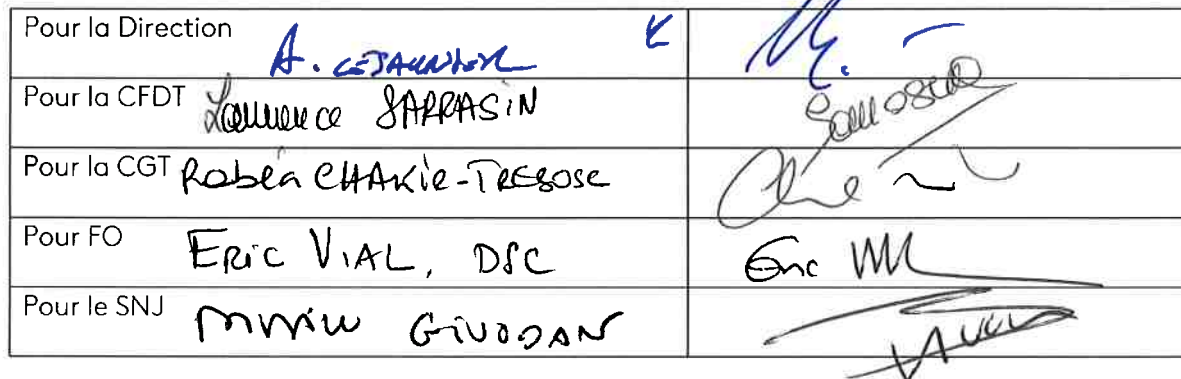 Pour la Direction A.
Pour la CFDT Laurence SARRASIN
Pour la CGT Rabéa CHAKIR-TREBOSC
Pour FO ERIC VIAL, DSC Eric
Pour le SNJ GIVODAN